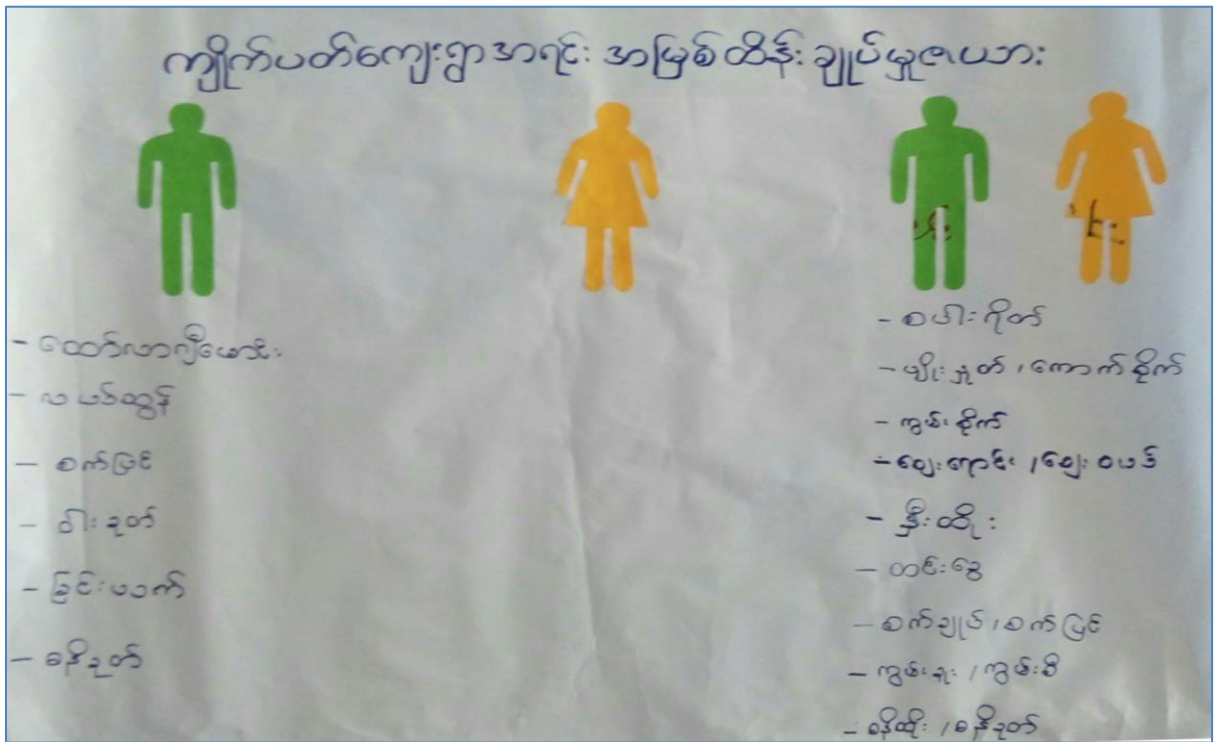 ကျိုက်ပတ်ကျေးရွာအရင်း အမြစ်ထိန်းချုပ်မှုဇယား
- ထော်လာဂျီမောင်း
- လယ်ထွန်
- စက်ပြင်
- ဝါးခုတ်
- ခြင်းပတ်
- ဓနိခုတ်
- စပါးရိတ်
- မျိုးနှုတ် ၊ ကောက်စိုက်
- ကွမ်းစိုက်
- ဈေးရောင်း ၊ ဈေးဝယ်
- နှီးထိုး
- တင်းခွေ
- စက်ချုပ် ၊ စက်ပြင်
- ကွမ်းခူး ၊ ကွမ်းစီ
- ဓနိထိုး ၊ ဓနိခုတ်